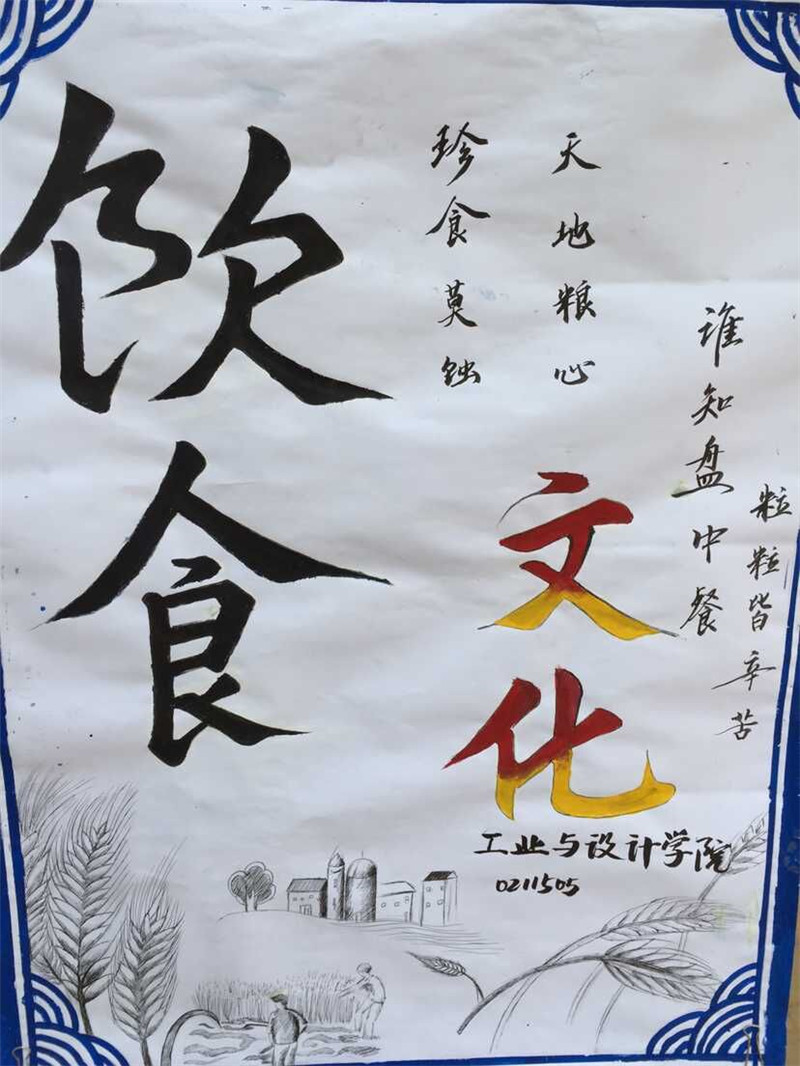 饮食
文化
天地粮心
珍食莫蚀
谁知盘中餐
粒粒皆辛苦
工业与设计学院
0211505